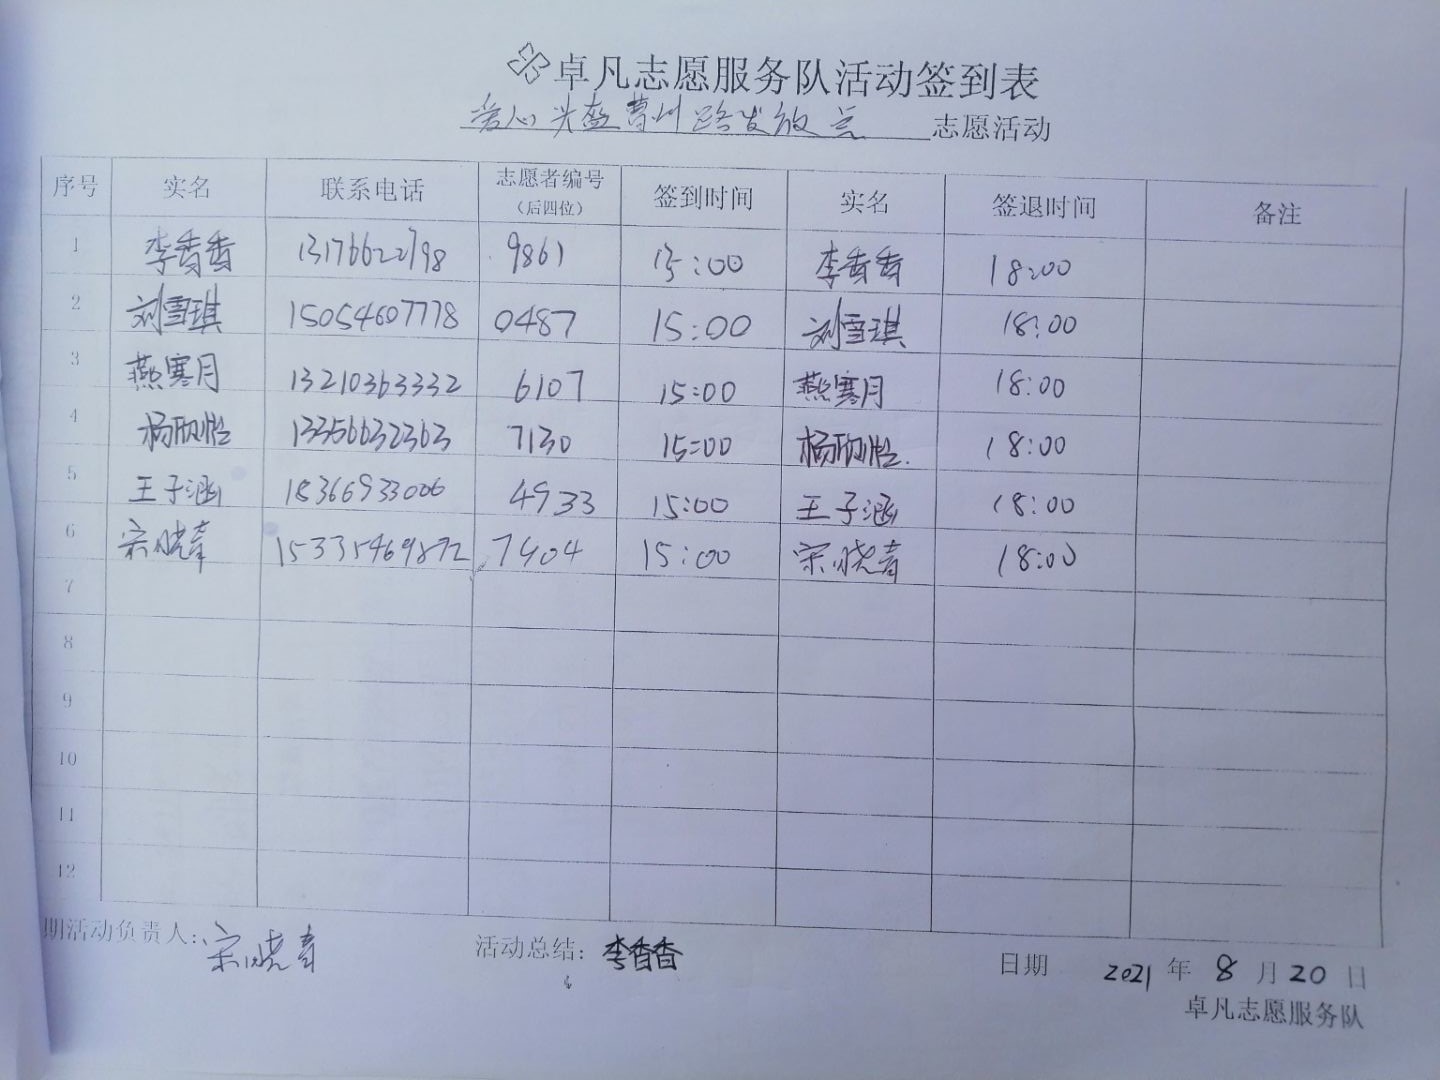 卓凡志愿服务队活动签到表
爱心头盔曹州路发放点 志愿活动
序号 实名 联系电话 志愿者编号（后四位） 签到时间 实名 签退时间 备注
1 李香香 13176622798 9861 15:00 李香香 18:00
2 刘雪琪 15054607778 0487 15:00 刘雪琪 18:00
3 燕寒月 13210363332 6107 15:00 燕寒月 18:00
4 杨欣怡 13356632363 7130 15:00 杨欣怡 18:00
5 王子涵 18366933006 4933 15:00 王子涵 18:00
6 宋晓青 15335469872 7404 15:00 宋晓青 18:00
7
8
9
10
11
12
期活动负责人: 宋晓青 活动总结: 李香香 日期 2021 年 8 月 20 日
卓凡志愿服务队